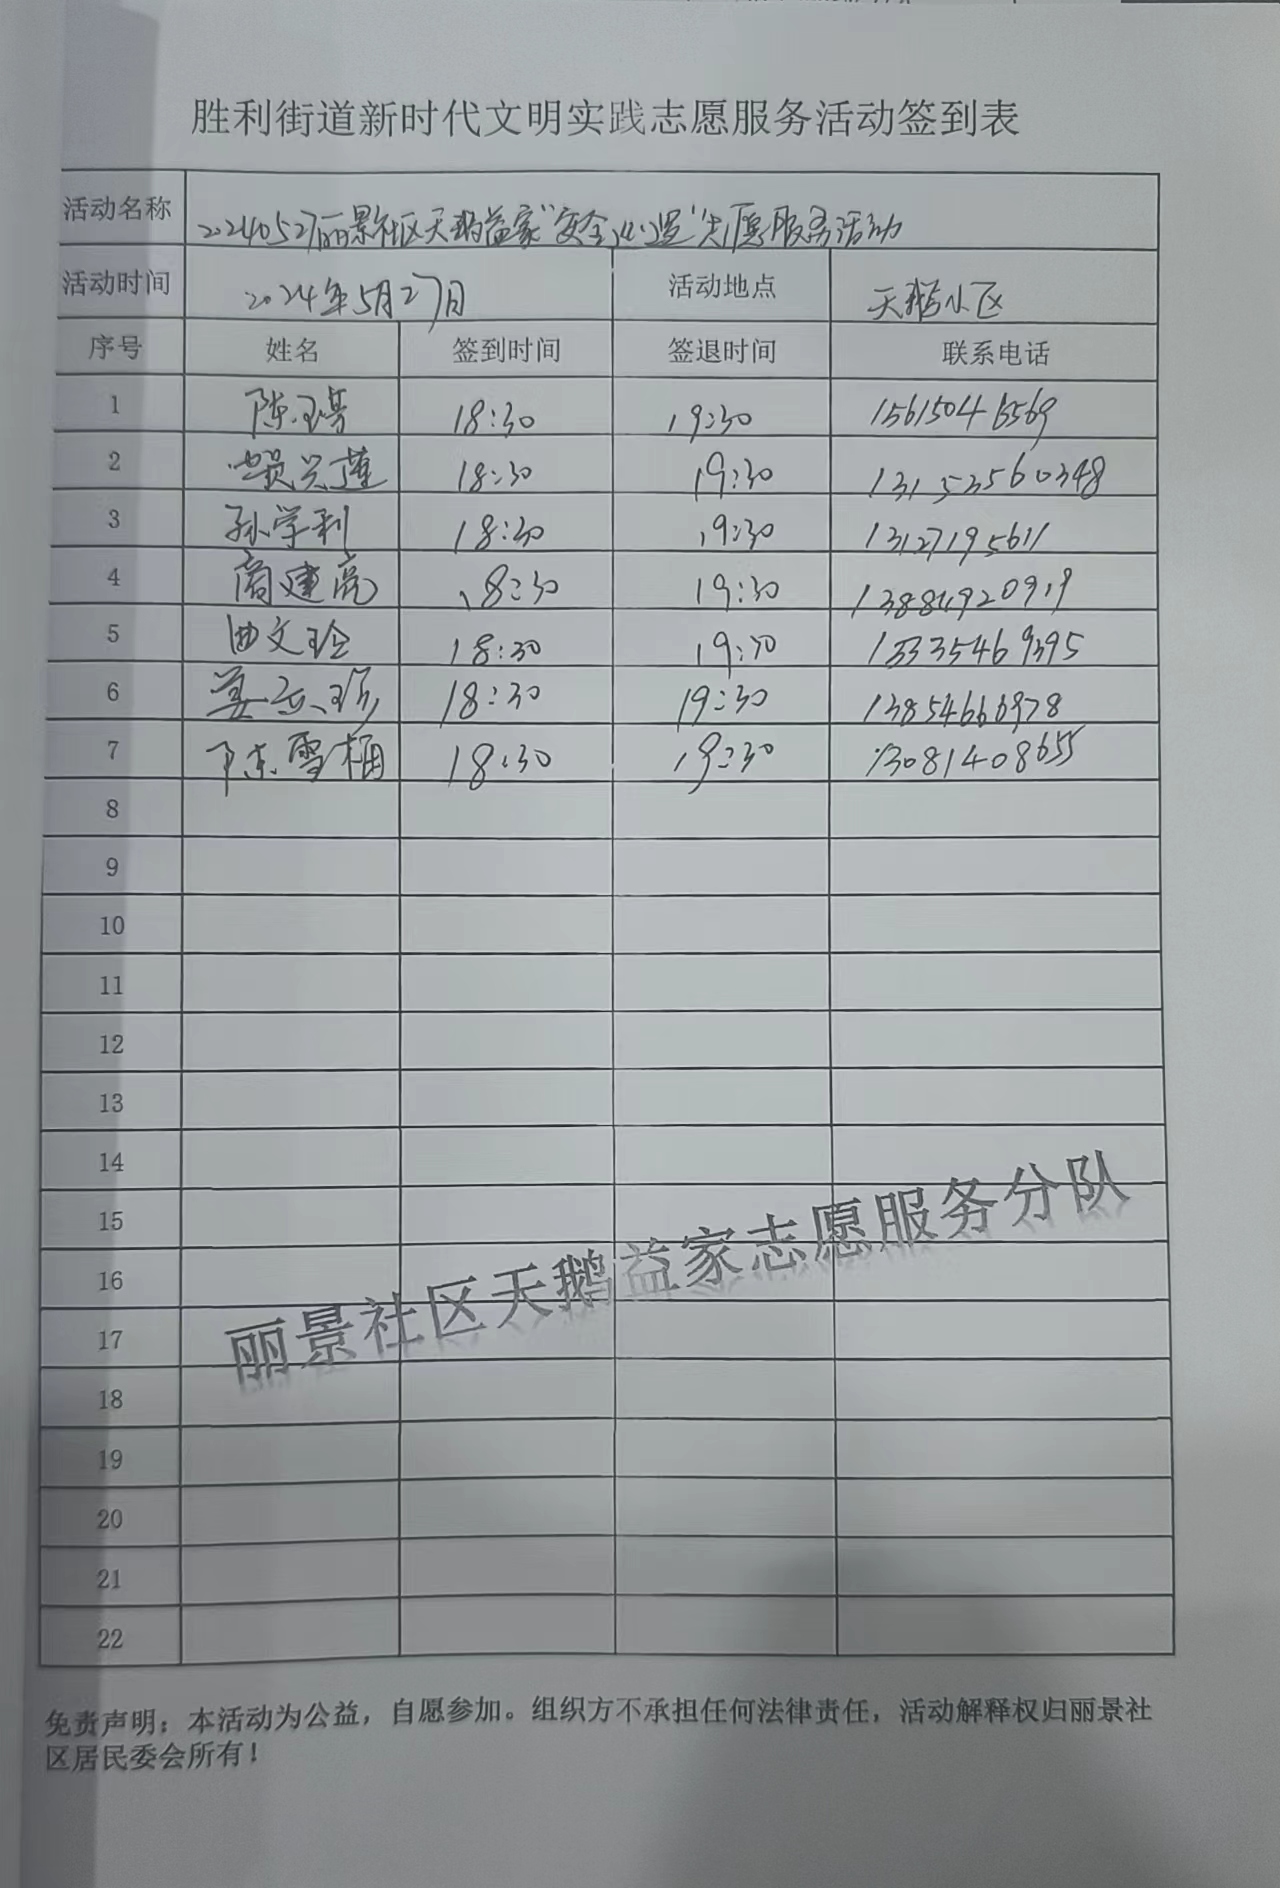 胜利街道新时代文明实践志愿服务活动签到表
活动名称 20240527丽景社区天鹅益家“安全巡逻”志愿服务活动
活动时间 2024年5月27日 活动地点 天鹅小区
序号 姓名 签到时间 签退时间 联系电话
1 18:30 19:30 15615046569
2 18:30 19:30 13153560348
3 孙学利 18:30 19:30 13127195611
4 商建亮 18:30 19:30 13884920919
5 曲文玲 18:30 19:30 15335469395
6 18:30 19:30 13854666978
7 陈雪梅 18:30 19:30 13081408655
8
9
10
11
12
13
14
15
16
17
18
19
20
21
22
丽景社区天鹅益家志愿服务分队
免责声明：本活动为公益，自愿参加。组织方不承担任何法律责任，活动解释权归丽景社
区居民委会所有！